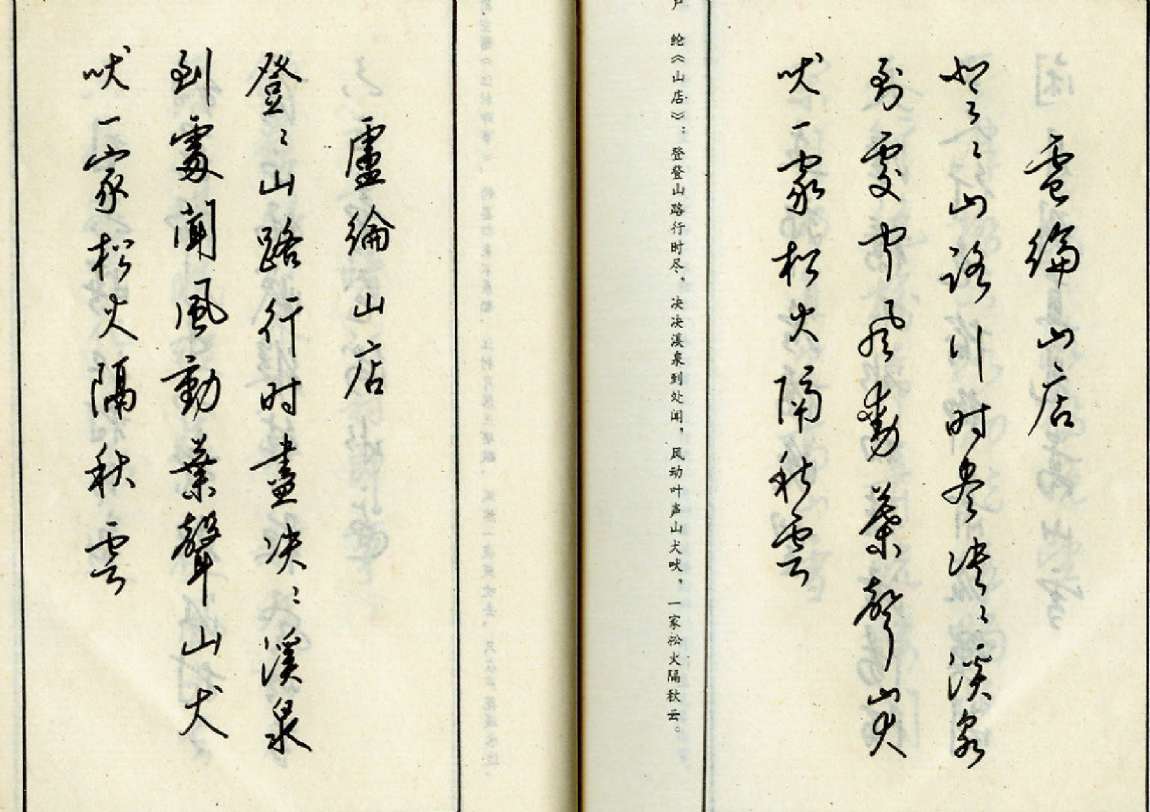 盧綸山店
登〻山路行时盡决〻溪泉
到處闻風動葉聲山犬
吠一家松火隔秋雲
户 纶《山店》：登登山路行时尽，决决溪泉到处闻，风动叶声山犬吠，一家松火隔秋云。
盧綸山店
登〻山路行时盡决〻溪泉
到處聞風動葉聲山犬
吠一家松火隔秋雲